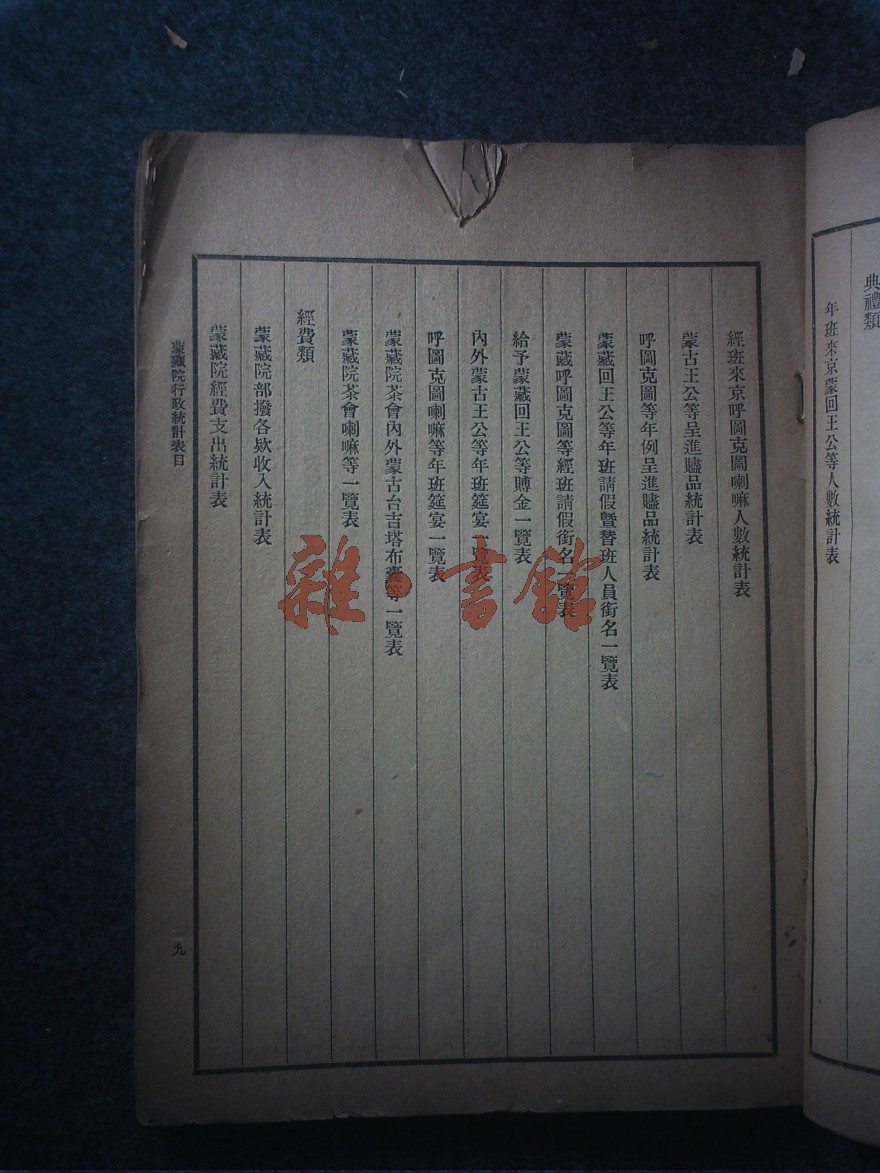 典禮類
年班來京蒙回王公等人數統計表
經班來京呼圖克圖喇嘛人數統計表
蒙古王公等呈進贐品統計表
呼圖克圖等年例呈進贐品統計表
蒙藏回王公等年班請假暨替班人員銜名一覽表
蒙藏呼圖克圖等經班請假銜名一覽表
給予蒙藏回王公等賻金一覽表
內外蒙古王公等年班筵宴一覽表
呼圖克圖喇嘛等年班筵宴一覽表
蒙藏院茶會內外蒙古台吉塔布囊等一覽表
蒙藏院茶會喇嘛等一覽表
經費類
蒙藏院部撥各欵收入統計表
蒙藏院經費支出統計表
蒙藏院行政統計表目
九
雜·書館